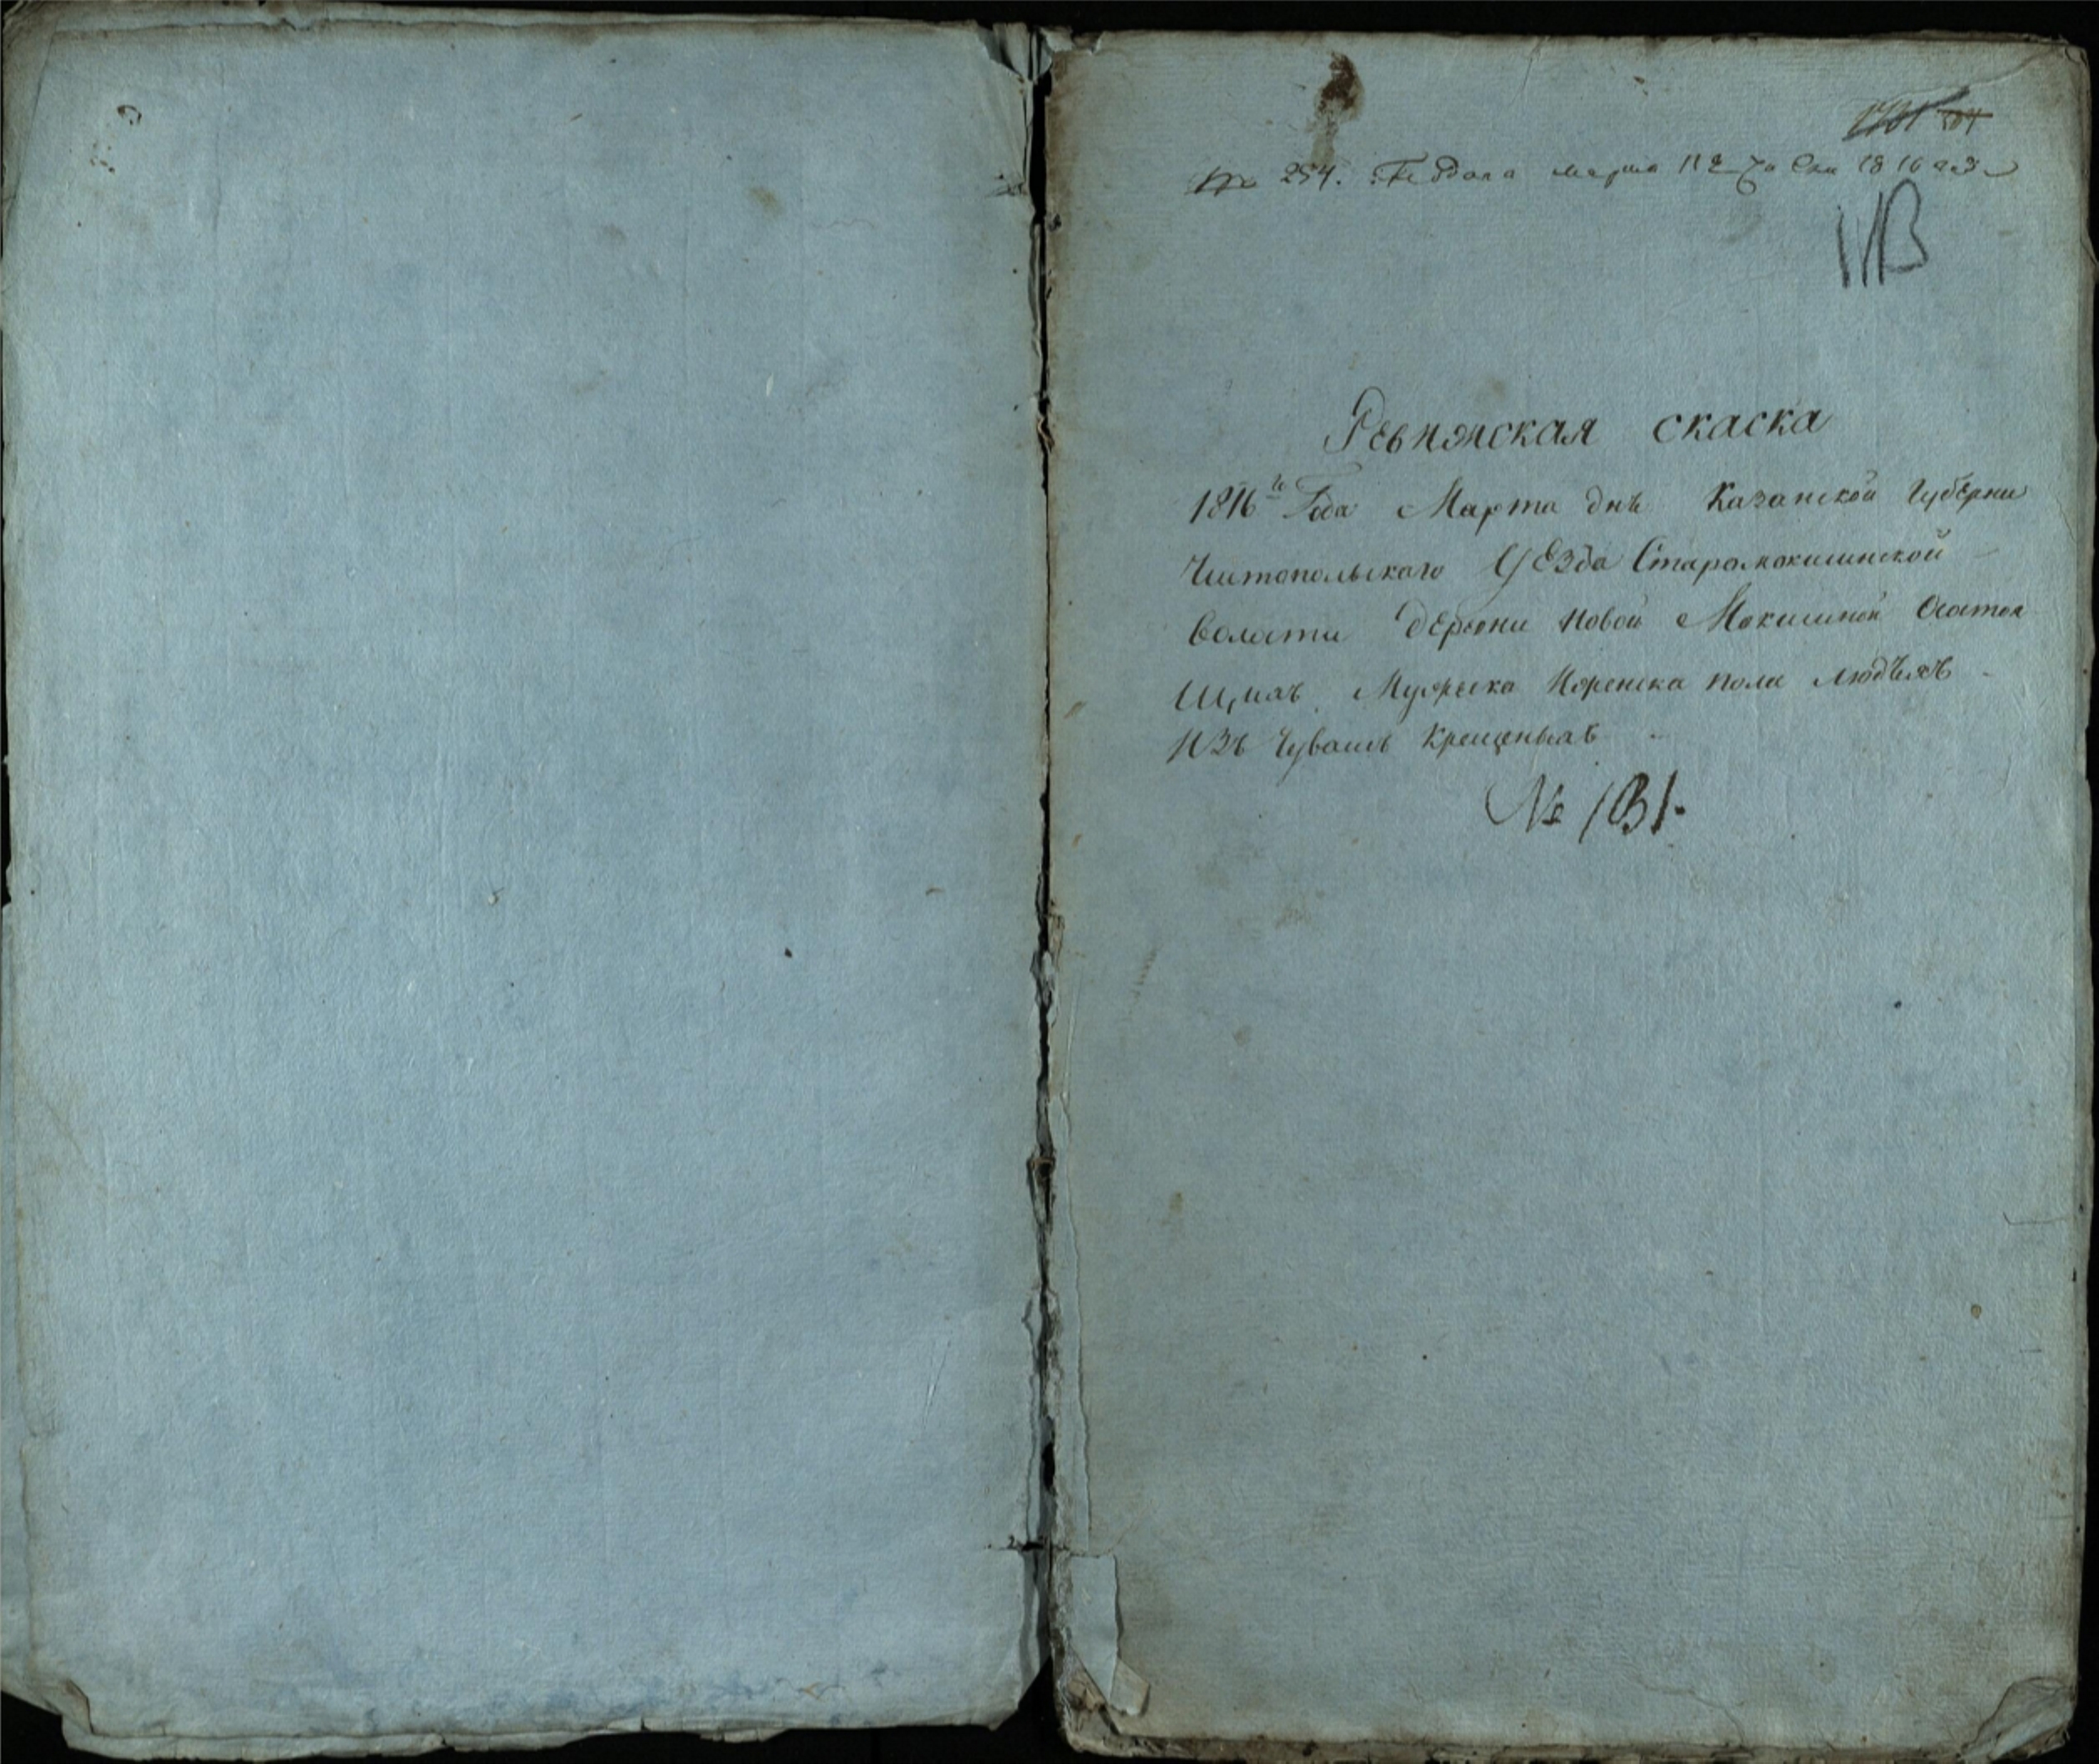 № 254. Подана марта 11 г. 1816 года
Ревизская скаска
1816го Года Марта днѣ Казанской Губерни
Чистопольскаго Уезда Старомокшинской
Волости Деревни Новой Мокшиной Остоя
щихъ Мужеска Женска пола людѣяхъ
Изъ Чувашъ Крещеныхъ
№ 131.